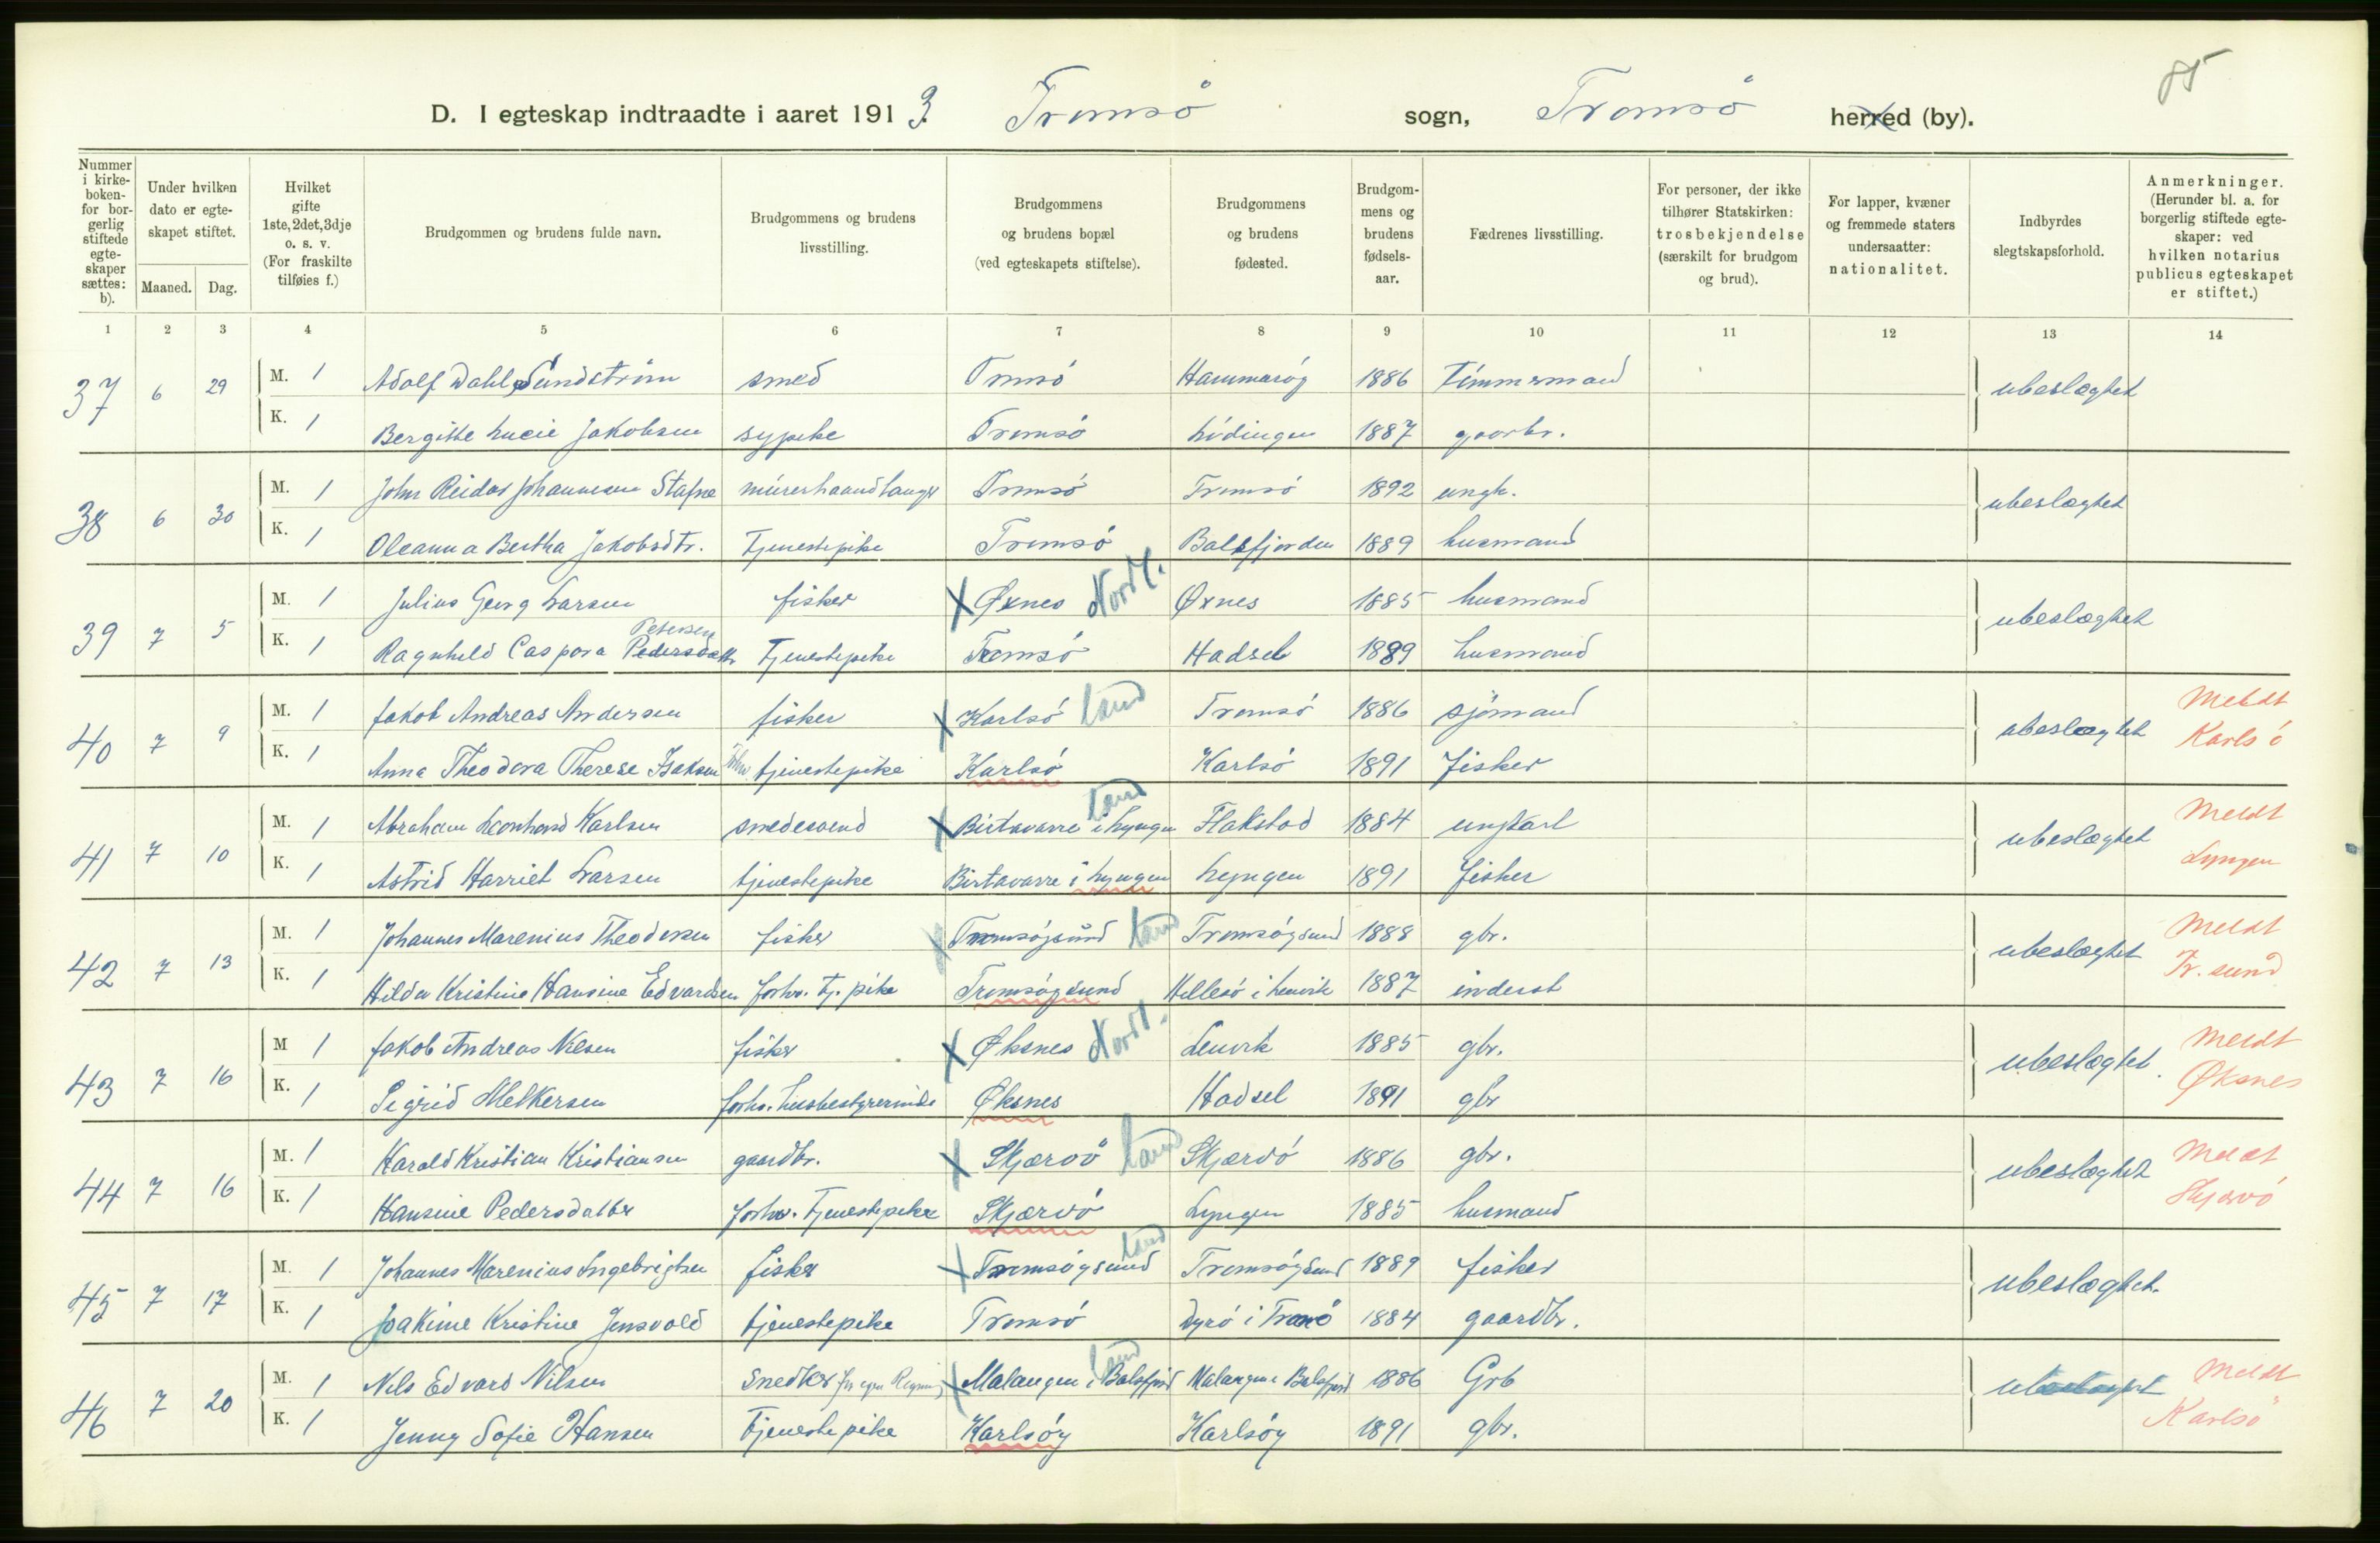 85
D. I egteskap indtraadte i aaret 1913. Tromsö sogn, Tromsö herred (by).
Nummer i kirke-boken- for bor-gerlig stiftede egte-skaper sættes: b).
Under hvilken dato er egte-skapet stiftet.
Maaned. Dag.
Hvilket gifte 1ste, 2det, 3dje o. s. v. (For fraskilte tilføies f.)
Brudgommen og brudens fulde navn.
Brudgommens og brudens livsstilling.
Brudgommens og brudens bopæl (ved egteskapets stiftelse).
Brudgommens og brudens fødested.
Brudgom-mens og brudens fødsels-aar.
Fædrenes livsstilling.
For personer, der ikke tilhører Statskirken: trosbekjendelse (særskilt for brudgom og brud).
For lapper, kvæner og fremmede staters undersaatter: nationalitet.
Indbyrdes slegtskapsforhold.
Anmerkninger. (Herunder bl. a. for borgerlig stiftede egte-skaper: ved hvilken notarius publicus egteskapet er stiftet.)
1 2 3 4 5 6 7 8 9 10 11 12 13 14
37 6 29 M. 1 Adolf Dahl Sundström smed Tromsö Hammarøy 1886 Timmermand ubeslægtet
K. 1 Bergitte Lucie Jakobsen sypike Tromsö Lödingen 1887 gaarbr.
38 6 30 M. 1 John Reidar Johannesen Stafne murerhaandlanger Tromsö Tromsö 1892 ungk. ubeslægtet
K. 1 Oleanna Bertha Jakobsdtr. tjenestepike Tromsö Balsfjorden 1889 husmand
39 7 5 M. 1 Julius Georg Larsen fisker X Øxnes Nordl. Øxnes 1885 husmand ubeslægtet
Petersen
K. 1 Ragnhild Caspara Pedersdatter tjenestepike Tromsö Hadsel 1889 husmand
40 7 9 M. 1 Jakob Andreas Andersen fisker X Karlsö land Tromsö 1886 sjömand ubeslægtet Meldt
K. 1 Anna Theodora Therese Isaksen forhv. tjenestepike Karlsö Karlsö 1891 fisker Karlsö
41 7 10 M. 1 Abraham Leonhard Karlsen smedesvend X Birtavarre i Lyngen land Flakstad 1884 ungkarl ubeslægtet Meldt
K. 1 Astrid Harriet Larsen tjenestepike Birtavarre i Lyngen Lyngen 1891 fisker Lyngen
42 7 13 M. 1 Johannes Marenius Theodorsen fisker X Tromsöysund land Tromsöysund 1888 gbr. ubeslægtet Meldt
K. 1 Hilda Kristine Hansine Edvardsen forhv. tj. pike Tromsöysund Hellesö i Lenvik 1887 inderst Tr. sund
43 7 16 M 1 Jakob Andreas Nilsen fisker X Øksnes Nordl. Lenvik 1885 gbr. ubeslægtet. Meldt
K. 1 Sigrid Melkersen forhv. husbestyrerinde Øksnes Hadsel 1891 gbr Øksnes
44 7 16 M. 1 Harald Kristian Kristiansen gaardbr. X Skjærvö land Skjærvö 1886 gbr. ubeslægtet Meldt
K. 1 Hansine Pedersdatter forhv. tjenestepike Skjærvö Lyngen 1885 husmand Skjærvö
45 7 17 M. 1 Johannes Marenius Ingebrigtsen fisker X Tromsöysund land Tromsöysund 1889 fisker ubeslægtet.
K. 1 Joakime Kristine Jensvold tjenestepike Tromsö Dyrö i Tranö 1884 gaardbr.
46 7 20 M. 1 Nils Edvard Nilsen Snedker for egen Regning X Malangen i Balsfjord land Malangen i Balsfjord 1886 Grb ubeslægtet Meldt
K. 1 Jenny Sofie Hansen Tjenestepike Karlsöy Karlsöy 1891 gbr. Karlsö